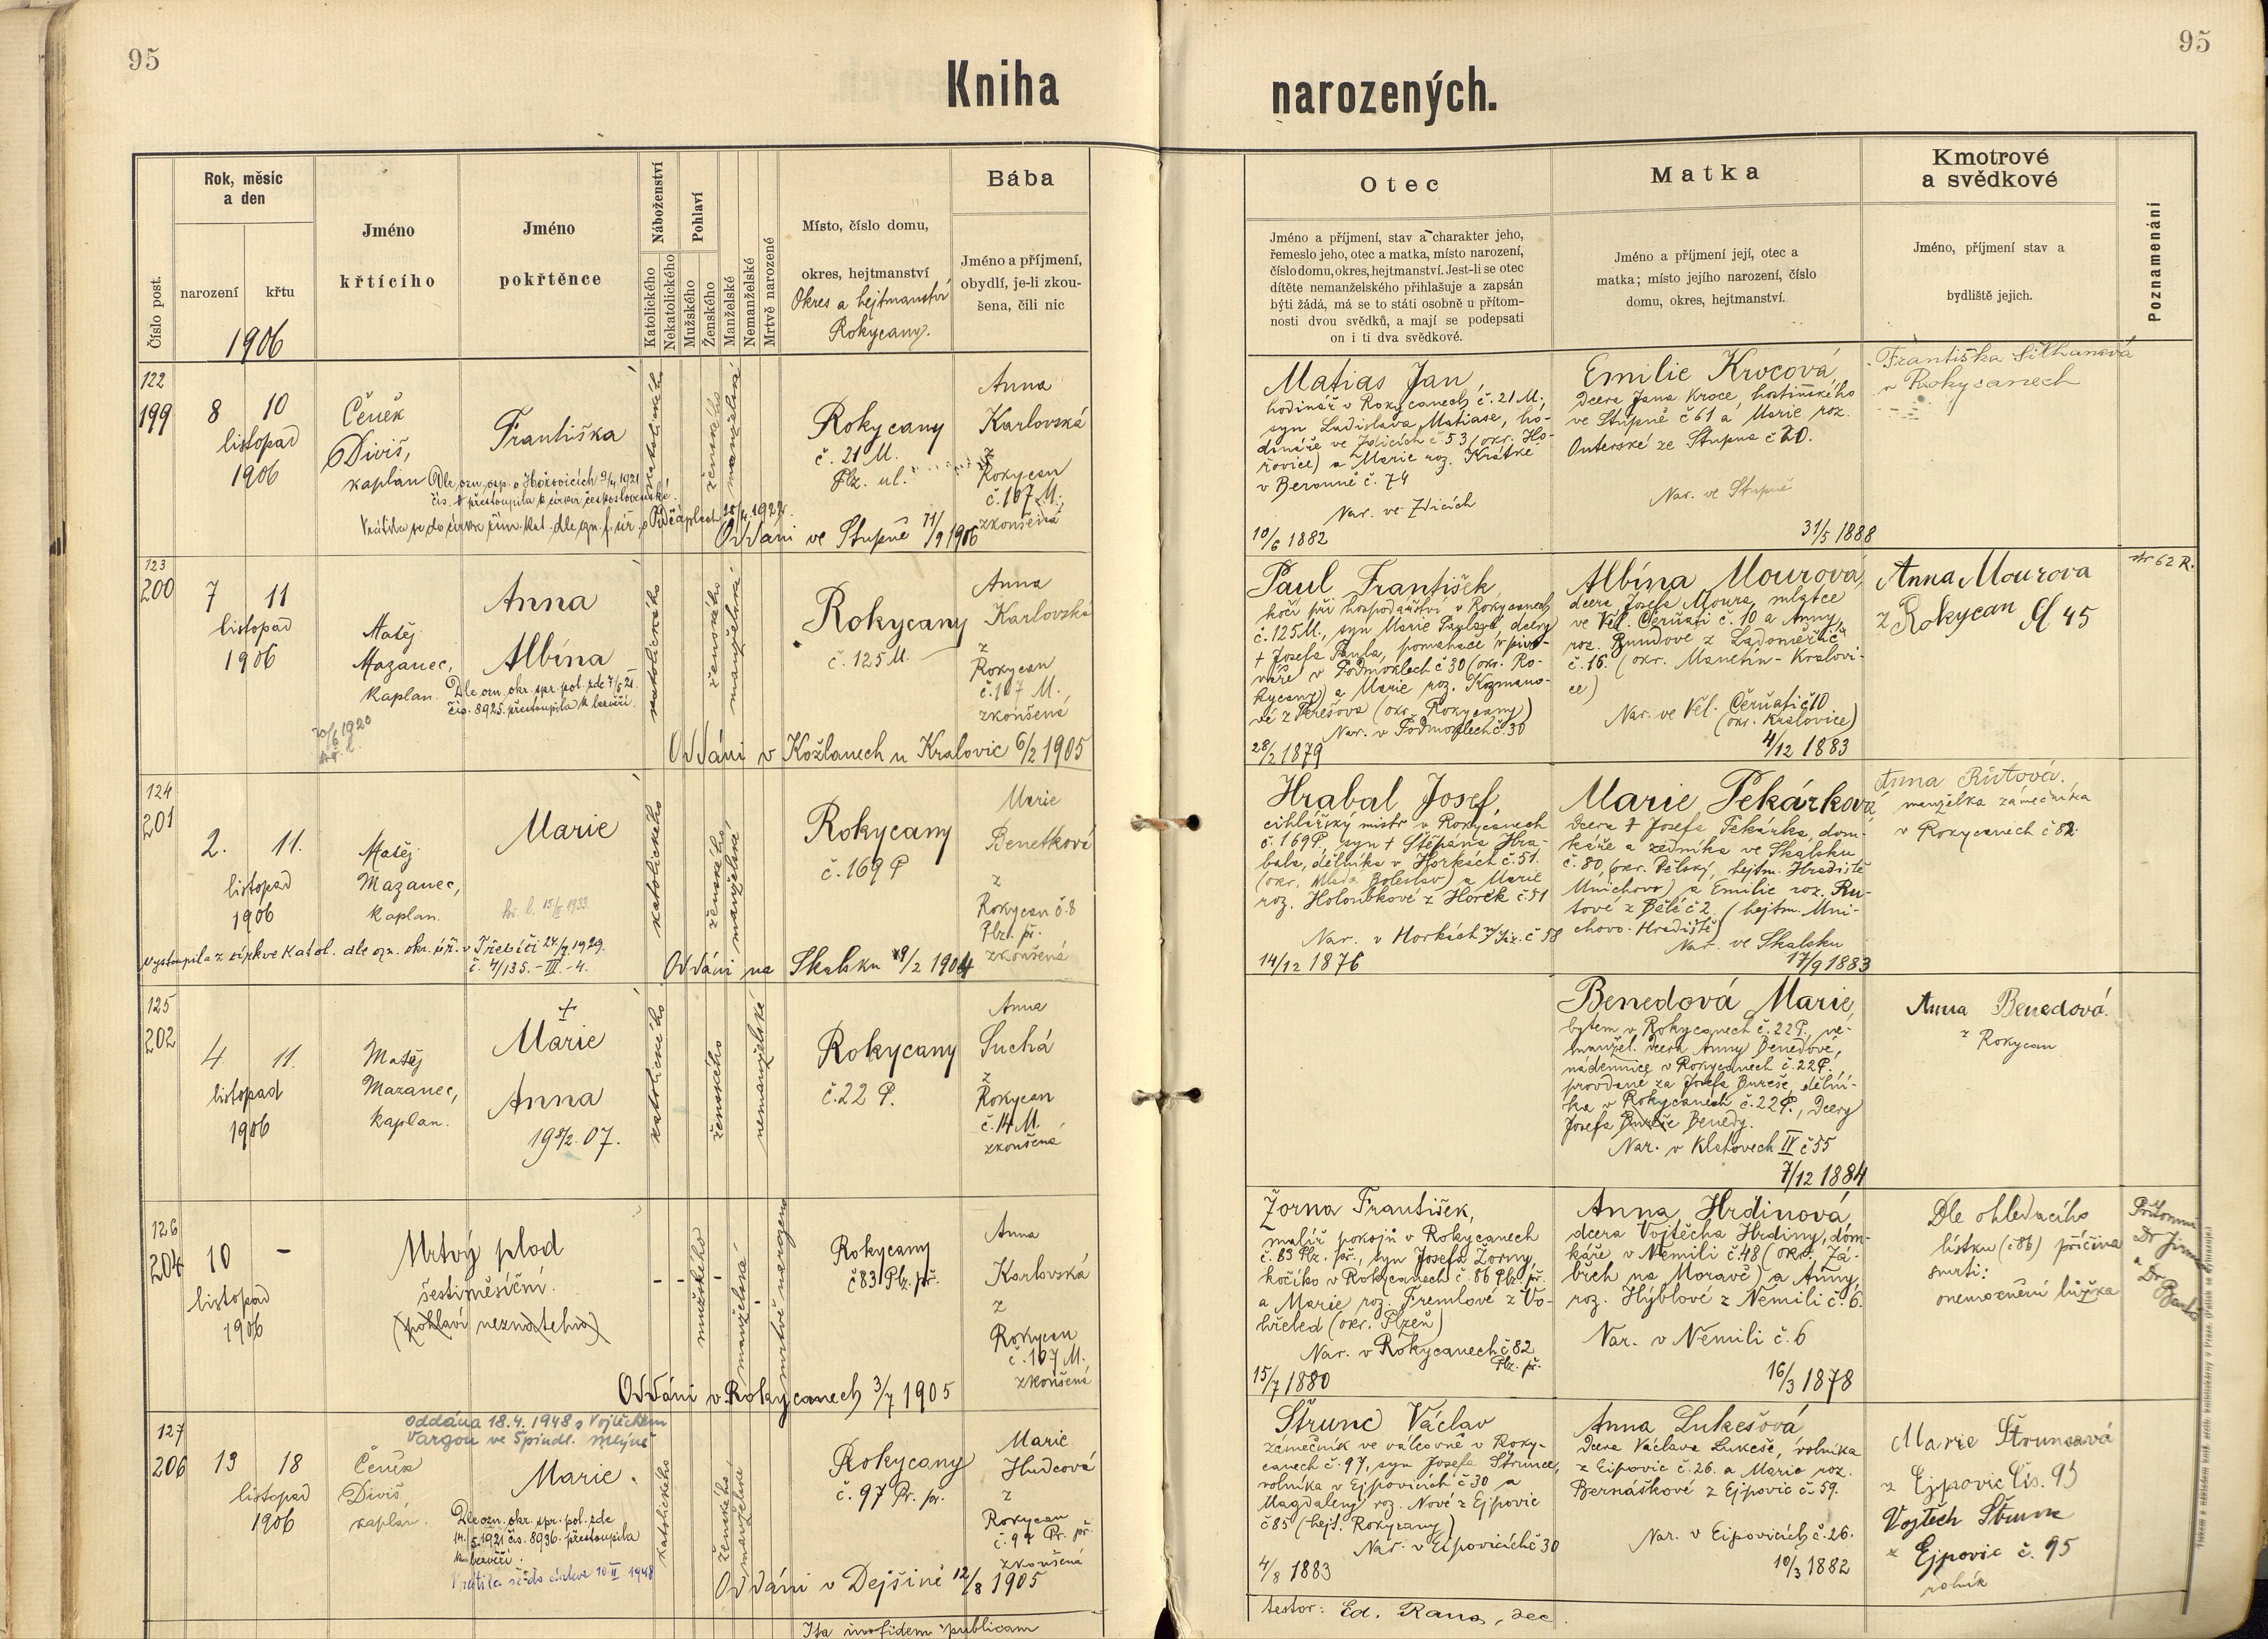 95
95
Kniha
narozených.
Číslo post.
Rok, měsíc
a den
narození
křtu
1906
Jméno
křtícího
Jméno
pokřtěnce
Náboženství
Katolického
Nekatolického
Pohlaví
Mužského
Ženského
Manželské
Nemanželské
Mrtvě narozené
Místo, číslo domu,
okres, hejtmanství
Okres a hejtmanství
Rokycany.
Bába
Jméno a příjmení,
obydlí, je-li zkou-
šena, čili nic
Otec
Jméno a příjmení, stav a charakter jeho,
řemeslo jeho, otec a matka, místo narození,
číslo domu, okres, hejtmanství. Jest-li se otec
dítěte nemanželského přihlašuje a zapsán
býti žádá, má se to státi osobně u přítom-
nosti dvou svědků, a mají se podepsati
on i ti dva svědkové.
Matka
Jméno a příjmení její, otec a
matka; místo jejího narození, číslo
domu, okres, hejtmanství.
Kmotrové
a svědkové
Jméno, příjmení stav a
bydliště jejich.
Poznamenání
122
199
8 10
listopad
1906
Čeněk
Diviš,
kaplan
Františka
katolického
ženského
manželské
Rokycany
č. 21 M.
Plz. ul.
Anna
Karlovská
z
Rokycan
č. 107 M.,
zkoušená
Oddáni ve Stupně 11/9 1906
Matias Jan,
hodinář v Rokycanech č. 21 M.,
syn Ladislava Matiase, ho-
dináře ve Zdicích č 53 (okr. Ho-
řovice) a Marie roz. Krátké
v Berouně č. 74
Nar. ve Zdicích
10/6 1882
Emilie Krocová,
dcera Jana Kroce, hostinského
ve Stupně č 61 a Marie roz.
ze Stupna č 20.
Nar. ve Stupně
31/5 1888
Františka
v Rokycanech
123
200
7 11
listopad
1906
Matěj
Mazanec,
kaplan.
Anna
Albína
Dle ozn. okr. spr. pol. zde 7/5 21.
čís. 8925 přestoupila k bezvěří.
katolického
ženského
manželské
Rokycany
č. 125 M.
Anna
Karlovská
z
Rokycan
č. 107 M.,
zkoušená
Oddáni v Kožlanech u Kralovic 6/2 1905
Paul František,
kočí při hospodářství v Rokycanech
č. 125 M., syn Marie dcery
† Josefa Paula, pomahače v pivo-
váře v Podmoklech č 30 (okr. Ro-
kycany) a Marie roz. Kozmano-
vé z Terešova (okr. Rokycany)
Nar. v Podmoklech č. 30
28/2 1879
Albína Mourová,
dcera Josefa Moura, mlatce
ve Vel. Černati č. 10 a Anny,
roz. Bundové z Ladoměřic
č. 16. (okr. Manetín - Kralovi-
ce)
Nar. ve Vel. Černati č 10
(okr. Kralovice)
4/12 1883
Anna Mourova
z Rokycan čj 45
str 62 R.
124
201
2. 11.
listopad
1906
Matěj
Mazanec,
kaplan.
Marie
Vystoupila z církve katol. dle ozn. okr. úř. v Třebíči 24/7 1929.
katolického
ženského
manželské
Rokycany
č. 169 P
Marie
Benetková
z
Rokycan č. 8
Plz. př.
zkoušená
Oddáni na Skalsku 9/2 1904
Hrabal Josef,
cihlářský mistr v Rokycanech
č. 169 P., syn † Štěpána Hra-
bala, dělníka v Horkách č. 51.
(okr. Mladá Boleslav) a Marie
roz. Holoubkové z Horek č. 51
14/12 1876
Marie Pekárková,
dcera † Josefa Pekárka, dom-
káře a zedníka ve Skalsku
č. 80, (okr. Bělský, hejtm. Hradiště
Mnichovo) a Emilie roz. Ru-
tové z Bělé č 2 (hejtm. Mni-
chovo - Hradiště)
Nar. ve Skalsku
17/9 1883
Anna Rutová.
manželka zámečníka
v Rokycanech č 82.
125
202
4 11.
listopad
1906
Matěj
Mazanec,
kaplan.
+
Marie
Anna
katolického
ženského
nemanželské
Rokycany
č. 22 P.
Anna
Suchá
z
Rokycan
č. 14 M.
zkoušená
Benedová Marie,
bytem v Rokycanech č. 22 P., ne-
manžel. dcera Anny Benedové,
nádennice v Rokycanech č. 22 P.
provdané za Josefa Bureše, dělní-
ka v Rokycanech č. 22 P., dcery
Josefa Bureše Benedy.
Nar. v Klatovech IV č 55
7/12 1884
Anna Benedová.
z Rokycan
126
204
10 -
listopad
1906
Mrtvý plod
šestiměsíční.
(pohlaví neznatelno)
mužského
manželské
mrtvě narozené
Rokycany
č 83 Plz. př.
Anna
Karlovská
z
Rokycan
č. 107 M.
zkoušená
Oddáni v Rokycanech 3/7 1905
Žorna František,
malíř pokojů v Rokycanech
č. 83 Plz. př., syn Josefa Žorny,
kočího v Rokycanech č. 86 Plz. př.
a Marie roz. Fremlové z Vo-
hřeled (okr. Plzeň)
Nar. v Rokycanech č 82
Plz. př.
15/7 1880
Anna Hrdinová,
dcera Vojtěcha Hrdiny, dom-
káře v Nemili č. 48 (okr. Zá-
břeh na Moravě) a Anny,
roz. Hýblové z Nemili č. 6.
Nar. v Nemili č. 6
16/3 1878
Dle ohledacího
lístku (č 86) příčina
smrti:
onemocnění lůžka
127
206
13 18
listopad
1906
Čeněk
Diviš,
kaplan.
oddána 18.4.1948 s Vojtěchem
Vargou ve Špindl. Mlýně
Marie.
Dle ozn. okr. spr. pol. zde
14/5 1921 čís. 8936. přestoupila
k bezvěří.
Vrátila se do církve 10 II 1948
katolického
ženského
manželské
Rokycany
č. 97 Pr. př.
Marie
Hudcová
z
Rokycan
č. 97 Pr. př.
zkoušená
Oddáni v Dejšině 12/8 1905
Štrunc Václav
zámečník ve válcovně v Roky-
canech č. 97, syn Josefa Štrunce,
rolníka v Ejpovicích č 30 a
Magdaleny roz. Nové z Ejpovic
č 85 (hejt. Rokycany)
Nar. v Ejpovicích č 30
4/8 1883
Anna Lukešová
dcera Václava Lukeše, rolníka
z Ejpovic č. 26. a Marie roz.
Bernáškové z Ejpovic č. 59.
Nar. v Ejpovicích č. 26.
10/3 1882
Marie Štruncová
z Ejpovic čís. 95
Vojtěch Štrunc
z Ejpovic č. 95
rolník
Ita in fidem publicam
testor: Ed. Rana, dec.